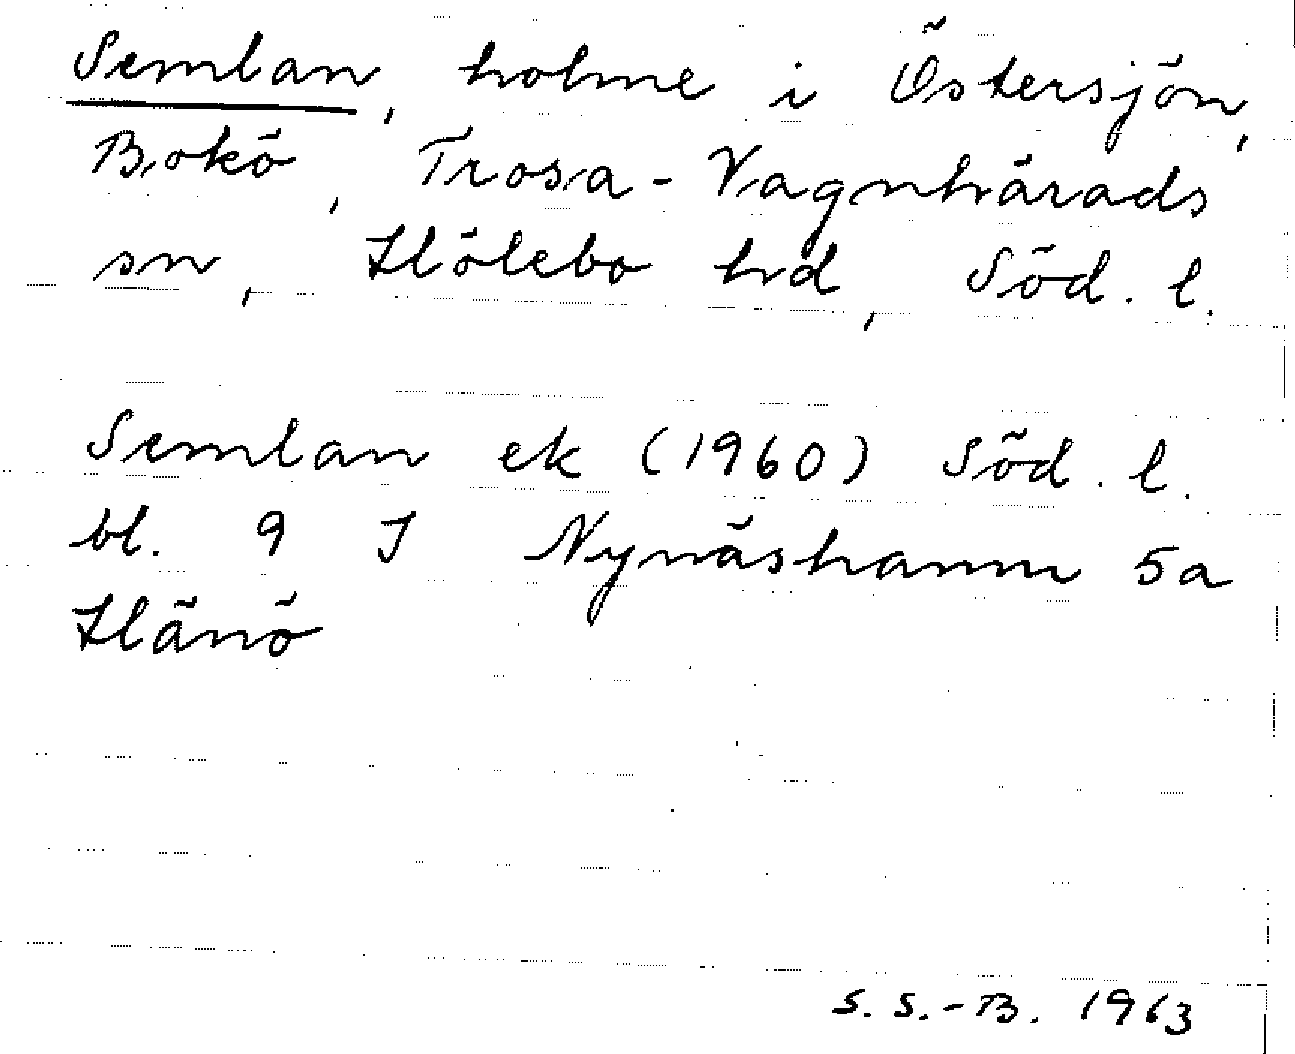 Semlan, holme i Östersjön,
Bokö, Trosa-Vagnhärads
sn, Hölebo hd, Söd. l.
Semlan ek (1960) Söd. l.
bl. 9 J Nynäshamn 5a
Hånö
S. S.-B. 1963